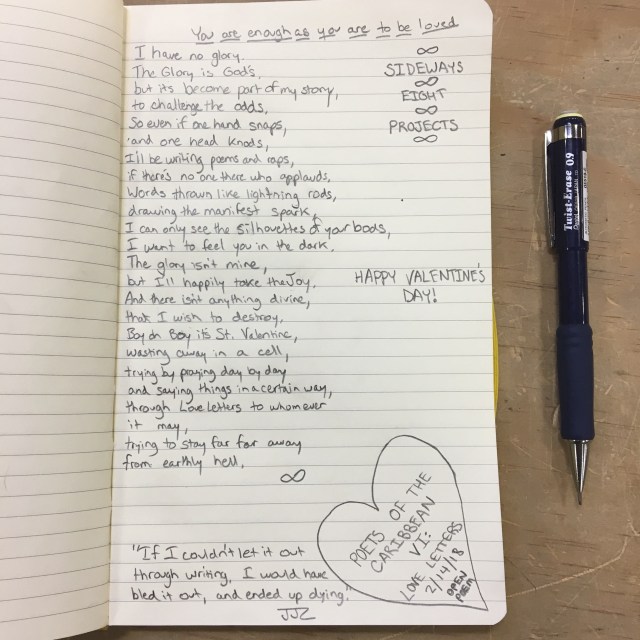 You are enough as you are to be loved
I have no glory.
The Glory is God's,
but its become part of my story,
to challenge the odds,
So even if one hand snaps,
and one head knods,
I'll be writing poems and raps,
if there's no one there who applauds.
Words thrown like lightning rods,
drawing the manifest spark,
I can only see the silhouettes of your bods,
I want to feel you in the dark.
The glory isn't mine,
but I'll happily take the Joy.
And there isn't anything divine,
that I wish to destroy,
Boy oh Boy it's St. Valentine,
wasting away in a cell,
trying by praying day by day
and saying things in a certain way,
through Love letters to whomever
it may,
trying to stay far far away
from earthly hell.
∞
∞
SIDEWAYS
∞
EIGHT
∞
PROJECTS
∞
HAPPY VALENTINE'S
DAY!
"If I couldn't let it out
through writing, I would have
bled it out, and ended up dying."
JJZ
POETS OF THE
CARIBBEAN
VI:
LOVE LETTERS
2/14/18
OPEN
POEM
Twist-Erase 0.9